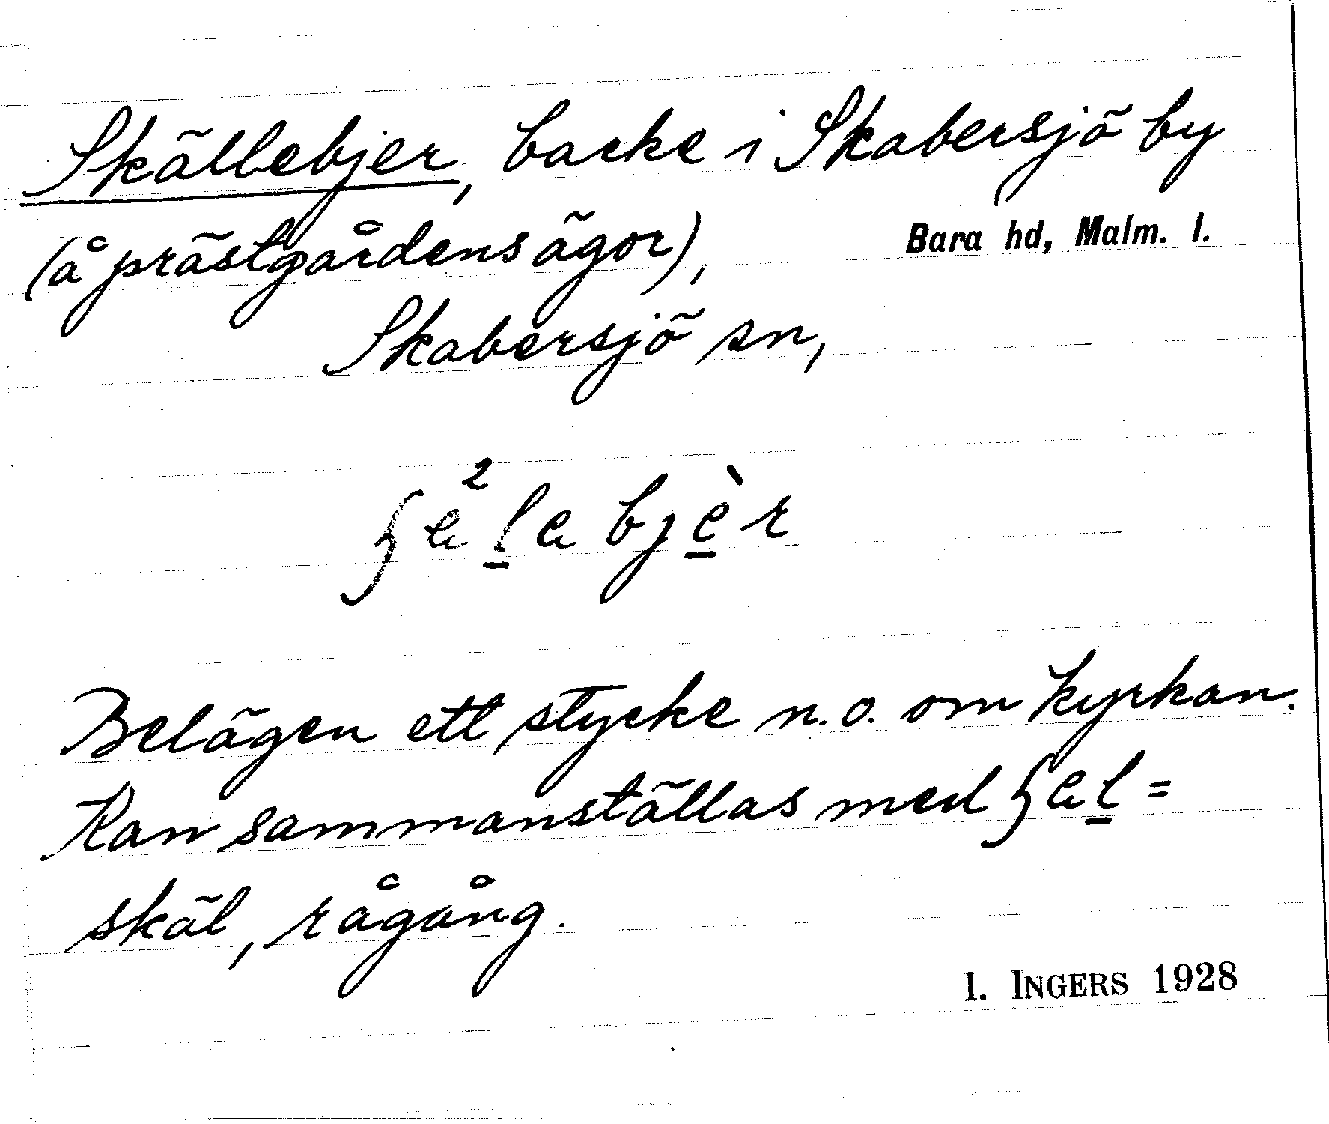 Skällebjer, backe i Skabersjö by
(å prästgårdens ägor), Bara hd, Malm. l.
Skabersjö sn,
Belägen ett stycke n.o. om kyrkan.
Kan sammanställas med =
skäl, rågång.
I. INGERS 1928